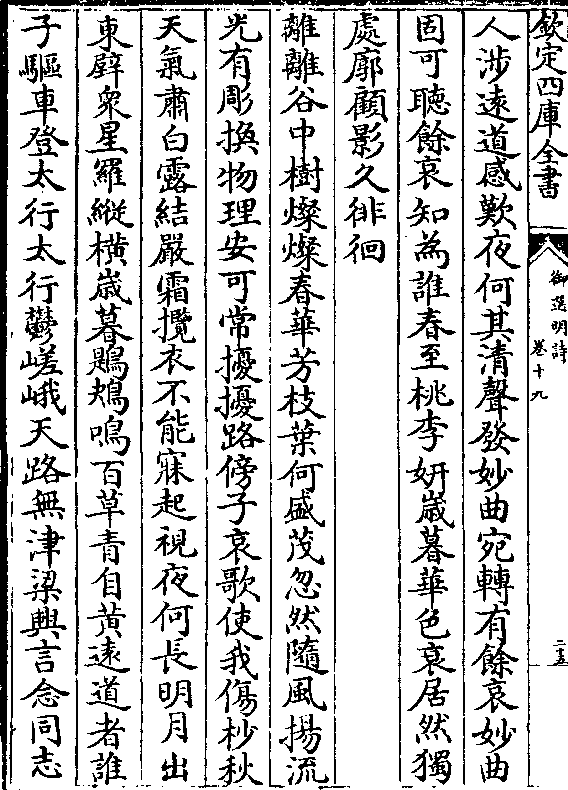 欽定四庫全書
御選明詩
卷十九
二五
人涉逺道感歎夜何其清聲發妙曲宛轉有餘哀妙曲
固可聴餘哀知為誰春至桃李妍嵗暮華色哀居然獨
處廓顧影久徘徊
離離谷中樹燦燦春華芳枝葉何盛茂忽然隨風揚流
光有彫換物理安可常擾擾路傍子哀歌使我傷杪秋
天氣肅白露結嚴霜攬衣不能寐起視夜何長明月出
東壁衆星羅縱横嵗暮鶗鴂鳴百草青自黄逺道者誰
子驅車登太行太行鬱嵯峨天路無津梁興言念同志